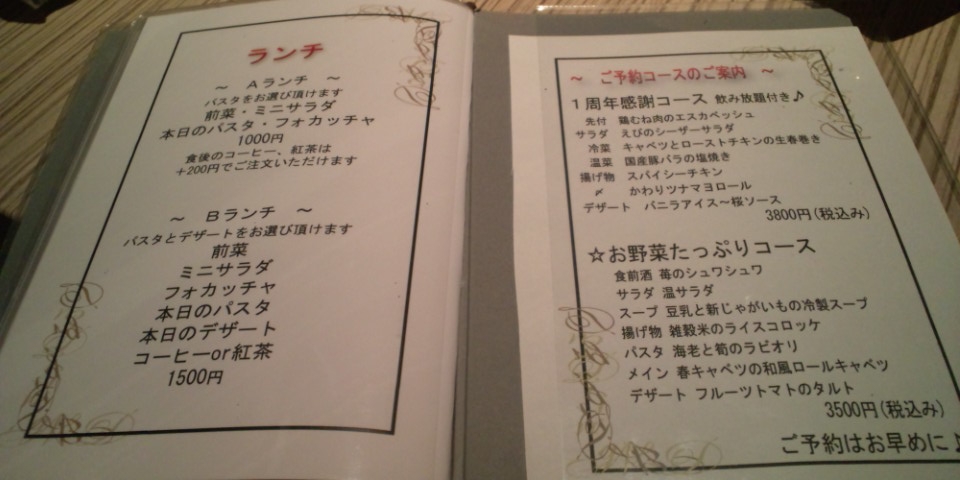 ランチ
～ Aランチ ～
パスタをお選び頂けます
前菜・ミニサラダ
本日のパスタ・フォカッチャ
1000円
食後のコーヒー、紅茶は
+200円でご注文いただけます
～ Bランチ ～
パスタとデザートをお選び頂けます
前菜
ミニサラダ
フォカッチャ
本日のパスタ
本日のデザート
コーヒーor紅茶
1500円
～ ご予約コースのご案内 ～
1周年感謝コース 飲み放題付き♪
先付 鶏むね肉のエスカベッシュ
サラダ えびのシーザーサラダ
冷菜 キャベツとローストチキンの生春巻き
温菜 国産豚バラの塩焼き
揚げ物 スパイシーチキン
〆 かわりツナマヨロール
デザート バニラアイス～桜ソース
3800円(税込み)
☆お野菜たっぷりコース
食前酒 苺のシュワシュワ
サラダ 温サラダ
スープ 豆乳と新じゃがいもの冷製スープ
揚げ物 雑穀米のライスコロッケ
パスタ 海老と筍のラビオリ
メイン 春キャベツの和風ロールキャベツ
デザート フルーツトマトのタルト
3500円(税込み)
ご予約はお早めに♪